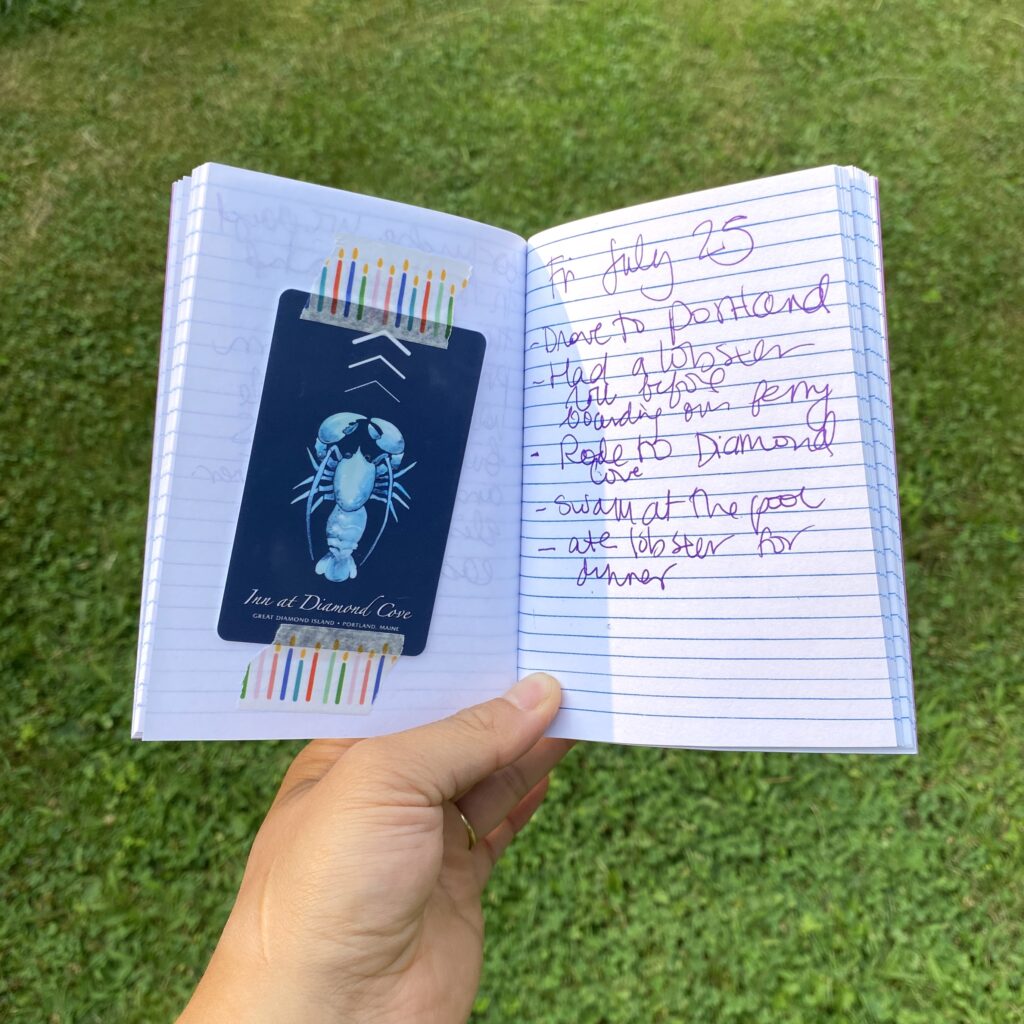 Inn at Diamond Cove
GREAT DIAMOND ISLAND • PORTLAND, MAINE
Fri July 25
- Drove to Portland
- Had a lobster
roll before
boarding our ferry
- Rode to Diamond
Cove
- Swam at the pool
- ate lobster for
dinner